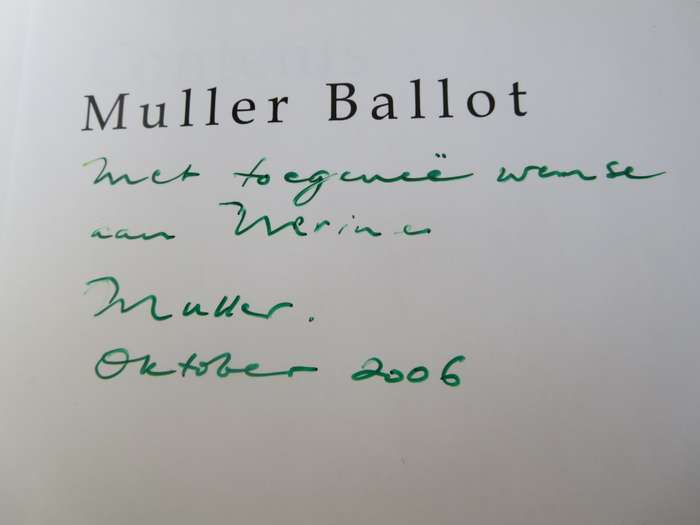 Muller Ballot
Met toegeneë wense
aan
Muller.
Oktober 2006